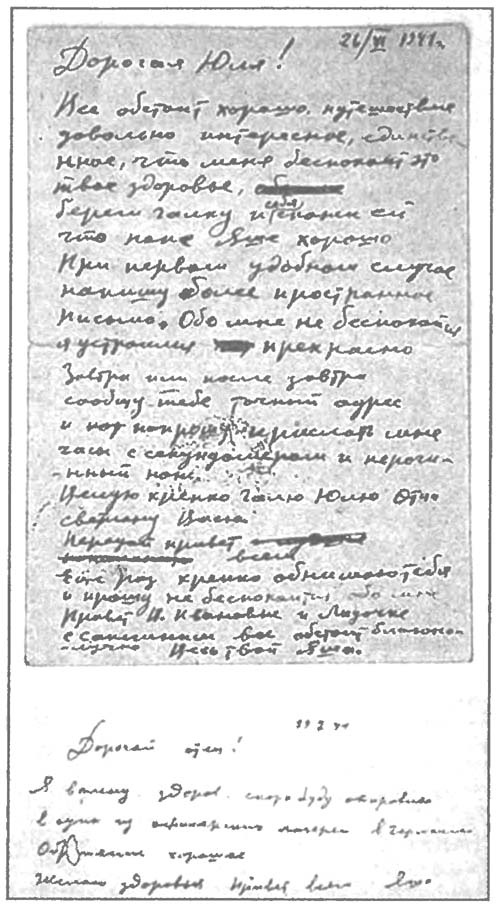 26/VI 1941г.
Дорогая Юля!
Все обстоит хорошо. путешествие
довольно интересное, единстве-
нное, что меня беспокоит это
твое здоровье,
береги Галку и себя скажи ей
что папе Яше хорошо
При первом удобном случае
напишу более пространное
письмо. Обо мне не беспокойся
я устроился прекрасно
Завтра или после завтра
сообщу тебе точный адрес
и попрошу прислать мне
часы с секундомером и перочи-
нный нож.
Целую крепко Галю Юлю Отца
Светлану Васю.
Передай привет всем
Еще раз крепко обнимаю тебя
и прошу не беспокоиться обо мне
Привет В. Ивановне и Лидочке
с Сапегиным все обстоит благопо-
лучно Весь твой Яша.
Дорогой отец!
Я вполне здоров, скоро буду отправлен
в один из офицерских лагерей в Германии
Обращение хорошее
Желаю здоровья Привет всем Яша